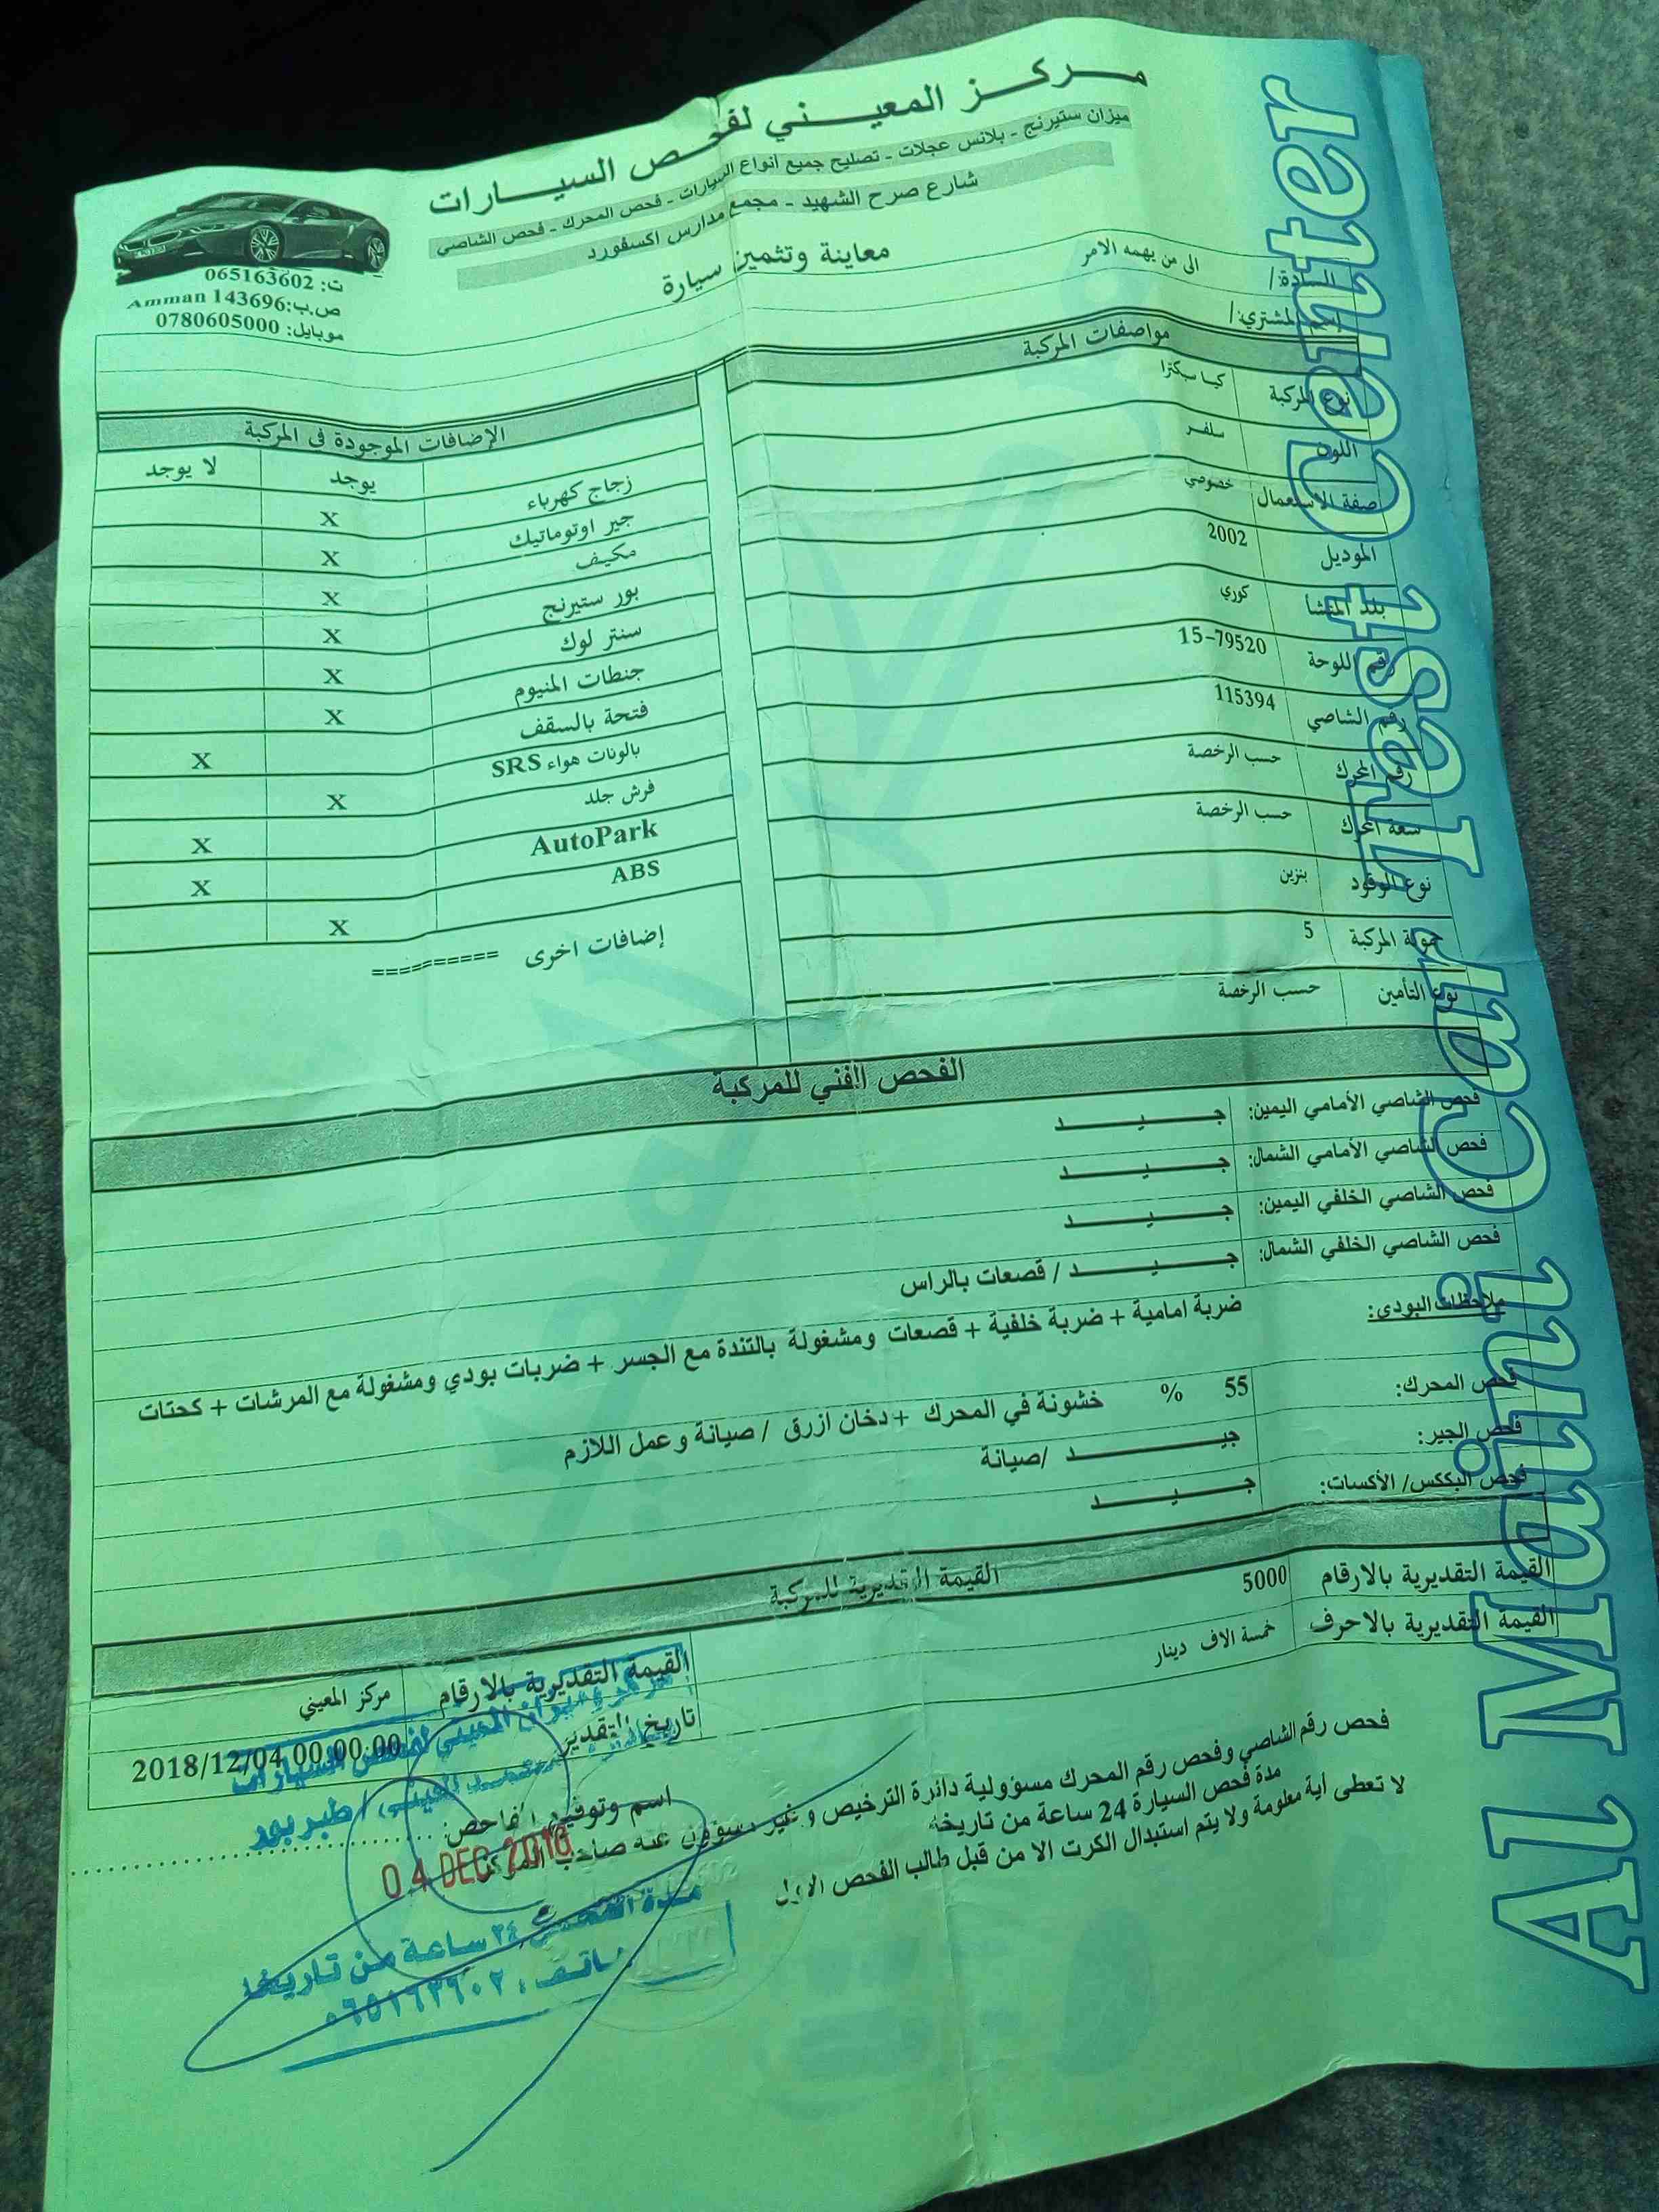 مركز المعيني لفحص السيارات
ميزان ستيرنج - بلانس عجلات - تصليح جميع انواع السيارات - فحص المحرك - فحص الشاصي
شارع صرح الشهيد - مجمع مدارس اكسفورد
معاينة وتثمين سيارة
ت: 065163602
ص.ب:143696 Amman
موبايل: 0780605000
السادة/ الى من يهمه الامر
إسم المشتري/
مواصفات المركبة
نوع المركبة كيا سبكترا
اللون سلفر
صفة الاستعمال خصوصي
الموديل 2002
بلد المنشأ كوري
رقم اللوحة 15-79520
رقم الشاصي 115394
رقم المحرك حسب الرخصة
سعة المحرك حسب الرخصة
نوع الوقود بنزين
حمولة المركبة 5
نوع التأمين حسب الرخصة
الإضافات الموجودة في المركبة
يوجد لا يوجد
زجاج كهرباء X
جير اوتوماتيك X
مكيف X
بور ستيرنج X
سنتر لوك X
جنطات المنيوم X
فتحة بالسقف X
بالونات هواء SRS X
فرش جلد X
AutoPark X
ABS X
إضافات اخرى ==========
الفحص الفني للمركبة
فحص الشاصي الأمامي اليمين: جيد
فحص الشاصي الأمامي الشمال: جيد
فحص الشاصي الخلفي اليمين: جيد
فحص الشاصي الخلفي الشمال: جيد / قصعات بالراس
ملاحظات البودي: ضربة امامية + ضربة خلفية + قصعات ومشغولة بالتندة مع الجسر + ضربات بودي ومشغولة مع المرشات + كحتات
فحص المحرك: 55 % خشونة في المحرك + دخان ازرق / صيانة وعمل اللازم
فحص الجير: جيد /صيانة
فحص البككس/ الأكسات: جيد
القيمة التقديرية للمركبة
القيمة التقديرية بالارقام 5000
القيمة التقديرية بالاحرف خمسة الاف دينار
القيمة التقديرية بالارقام مركز المعيني
تاريخ التقدير 2018/12/04 00:00:00
اسم وتوقيع الفاحص:
فحص رقم الشاصي وفحص رقم المحرك مسؤولية دائرة الترخيص و غير مسؤول عنه صاحب المركز
مدة فحص السيارة 24 ساعة من تاريخه
لا تعطى أية معلومة ولا يتم استبدال الكرت الا من قبل طالب الفحص الاول
طبربور
04 DEC 2018
مدة الفحص ٢٤ ساعة من تاريخه
هاتف: ٠٦٥١٦٣٦٠٢
Al Maini Car Test Center